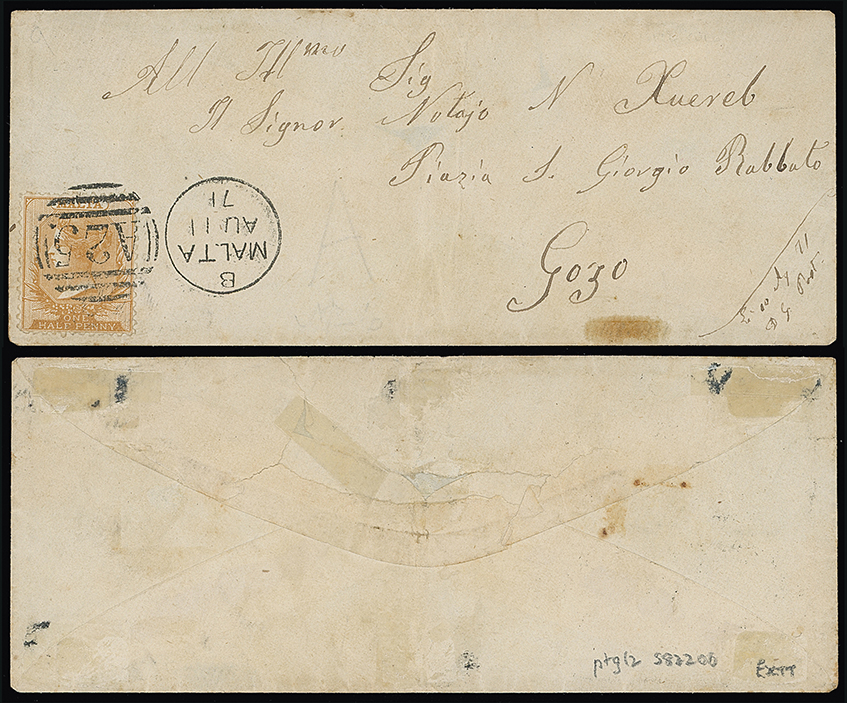 All Illmo Sig
Il Signor Notajo N Xuereb
Piazia S. Giorgio Rabbato
Gozo
MALTA
A25
ONE
HALF PENNY
B
MALTA
AU 11
71
71
ptg12 S82200
EXTT